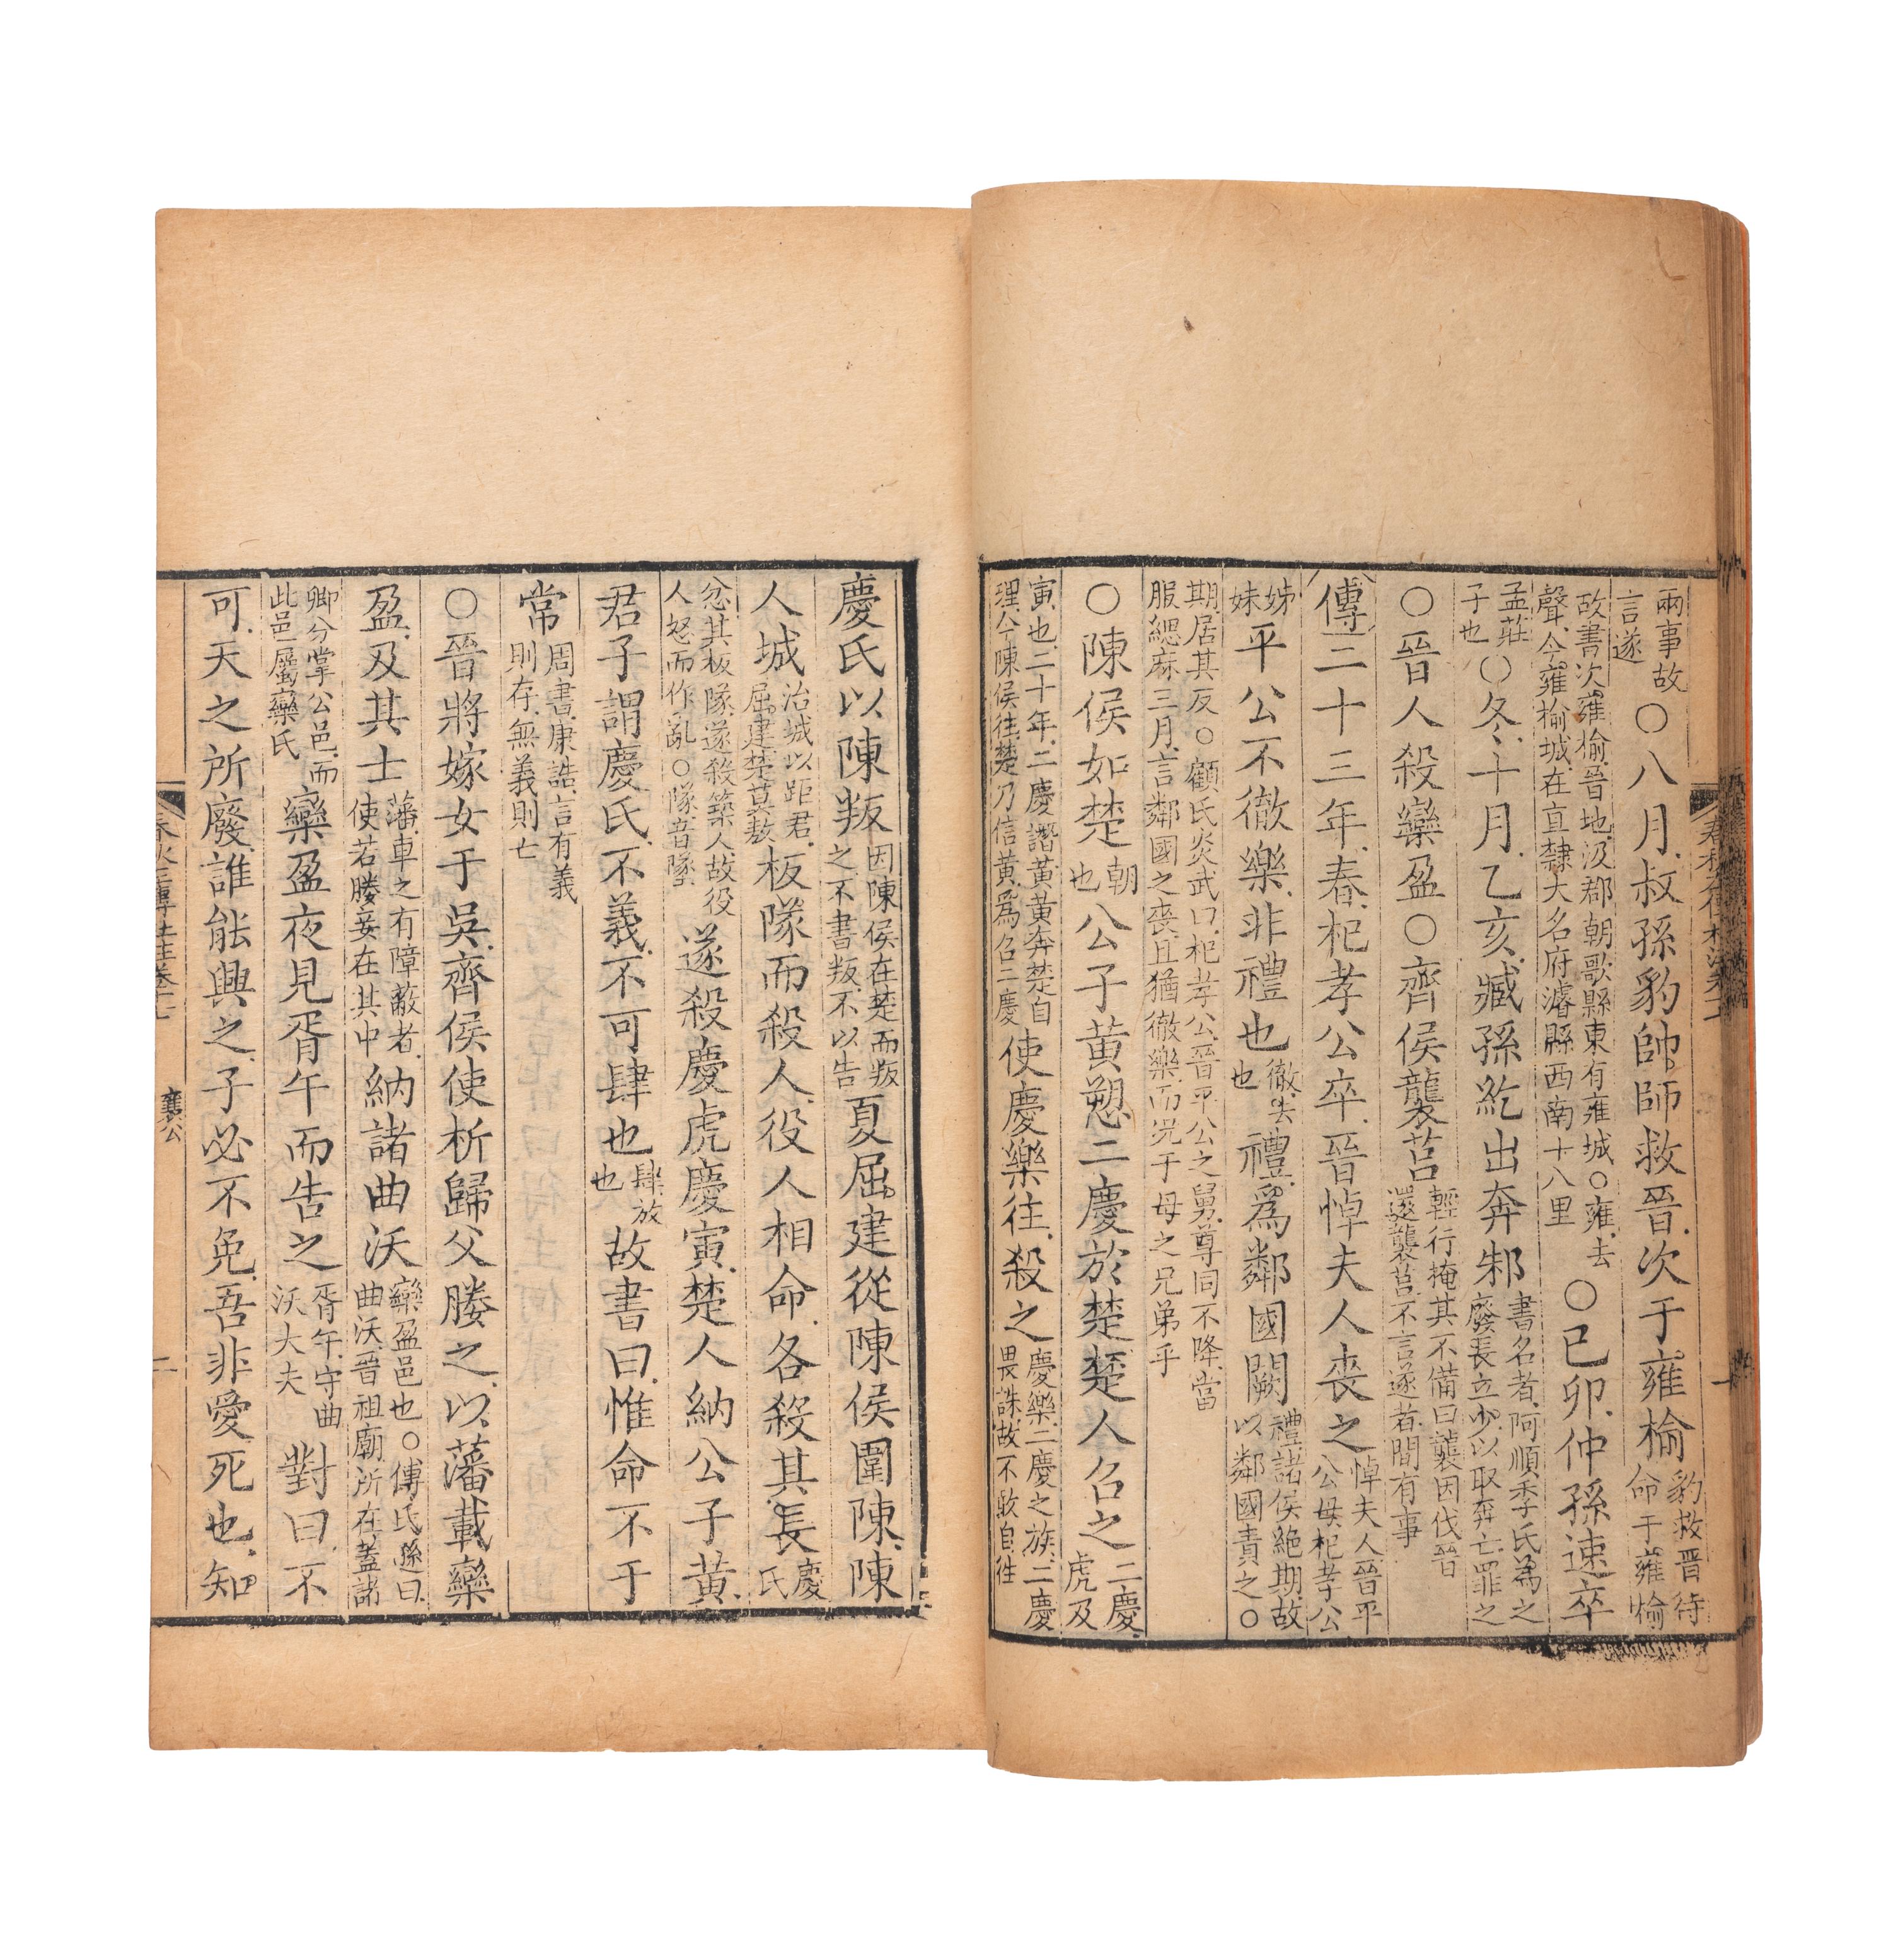 兩事故言遂○八月叔孫豹帥師救晉次于雍榆豹救晉待命于雍榆
故書次雍榆晉地汲郡朝歌縣東有雍城○雍去聲今雍榆城在直隸大名府濬縣西南十八里○己卯仲孫速卒
孟莊子也○冬十月乙亥臧孫紇出奔邾書名者阿順季氏為之廢長立少以取奔亡罪之
○晉人殺欒盈○齊侯襲莒輕行掩其不備曰襲因伐晉還襲莒不言遂者間有事
傳二十三年春杞孝公卒晉悼夫人喪之悼夫人晉平公母杞孝公
姊妹平公不徹樂非禮也徹去也禮爲鄰國闕禮諸侯絶期故以鄰國責之○
期居其反○顧氏炎武曰杞孝公晉平公之舅尊同不降當服緦麻三月言鄰國之喪且猶徹樂而況于母之兄弟乎
○陳侯如楚朝也公子黃愬二慶於楚楚人召之二慶虎及
寅也二十年二慶譖黃黃奔楚自理今陳侯往楚乃信黃爲召二慶使慶樂往殺之慶樂二慶之族二慶畏誅故不敢自往
慶氏以陳叛因陳侯在楚而叛之不書叛不以告夏屈建從陳侯圍陳陳
人城治城以距君屈建楚莫敖板隊而殺人役人相命各殺其長慶氏
忿其板隊遂殺築人故役人怒而作亂○隊音墜遂殺慶虎慶寅楚人納公子黃
君子謂慶氏不義不可肆也肆放也故書曰惟命不于
常周書康誥言有義則存無義則亡
○晉將嫁女于吳齊侯使析歸父媵之以藩載欒
盈及其士藩車之有障蔽者使若媵妾在其中納諸曲沃欒盈邑也○傅氏遜曰曲沃晉祖廟所在蓋諸
卿分掌公邑而此邑屬欒氏欒盈夜見胥午而告之胥午守曲沃大夫對曰不
可天之所廢誰能興之子必不免吾非愛死也知
襄公
二